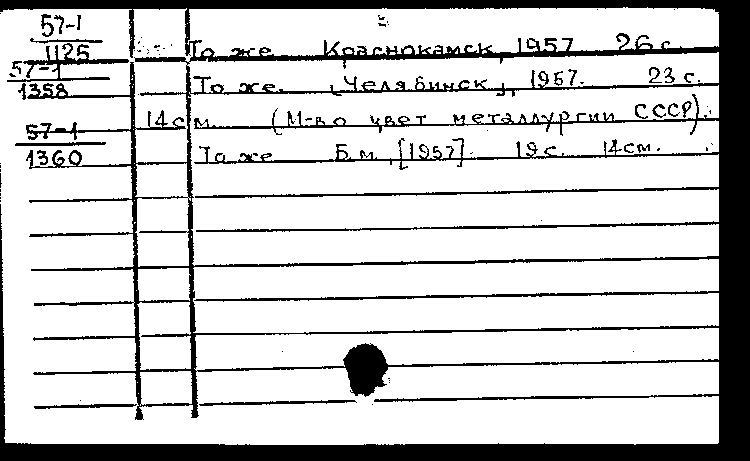 57-1
1125 То же Краснокамск, 1957 26 с.
57-1
1358 То же. [Челябинск], 1957. 23 с.
14 см. (М-во цвет металлургии СССР).
57-1
1360 То же Б.м., [1957]. 19 с. 14 см.